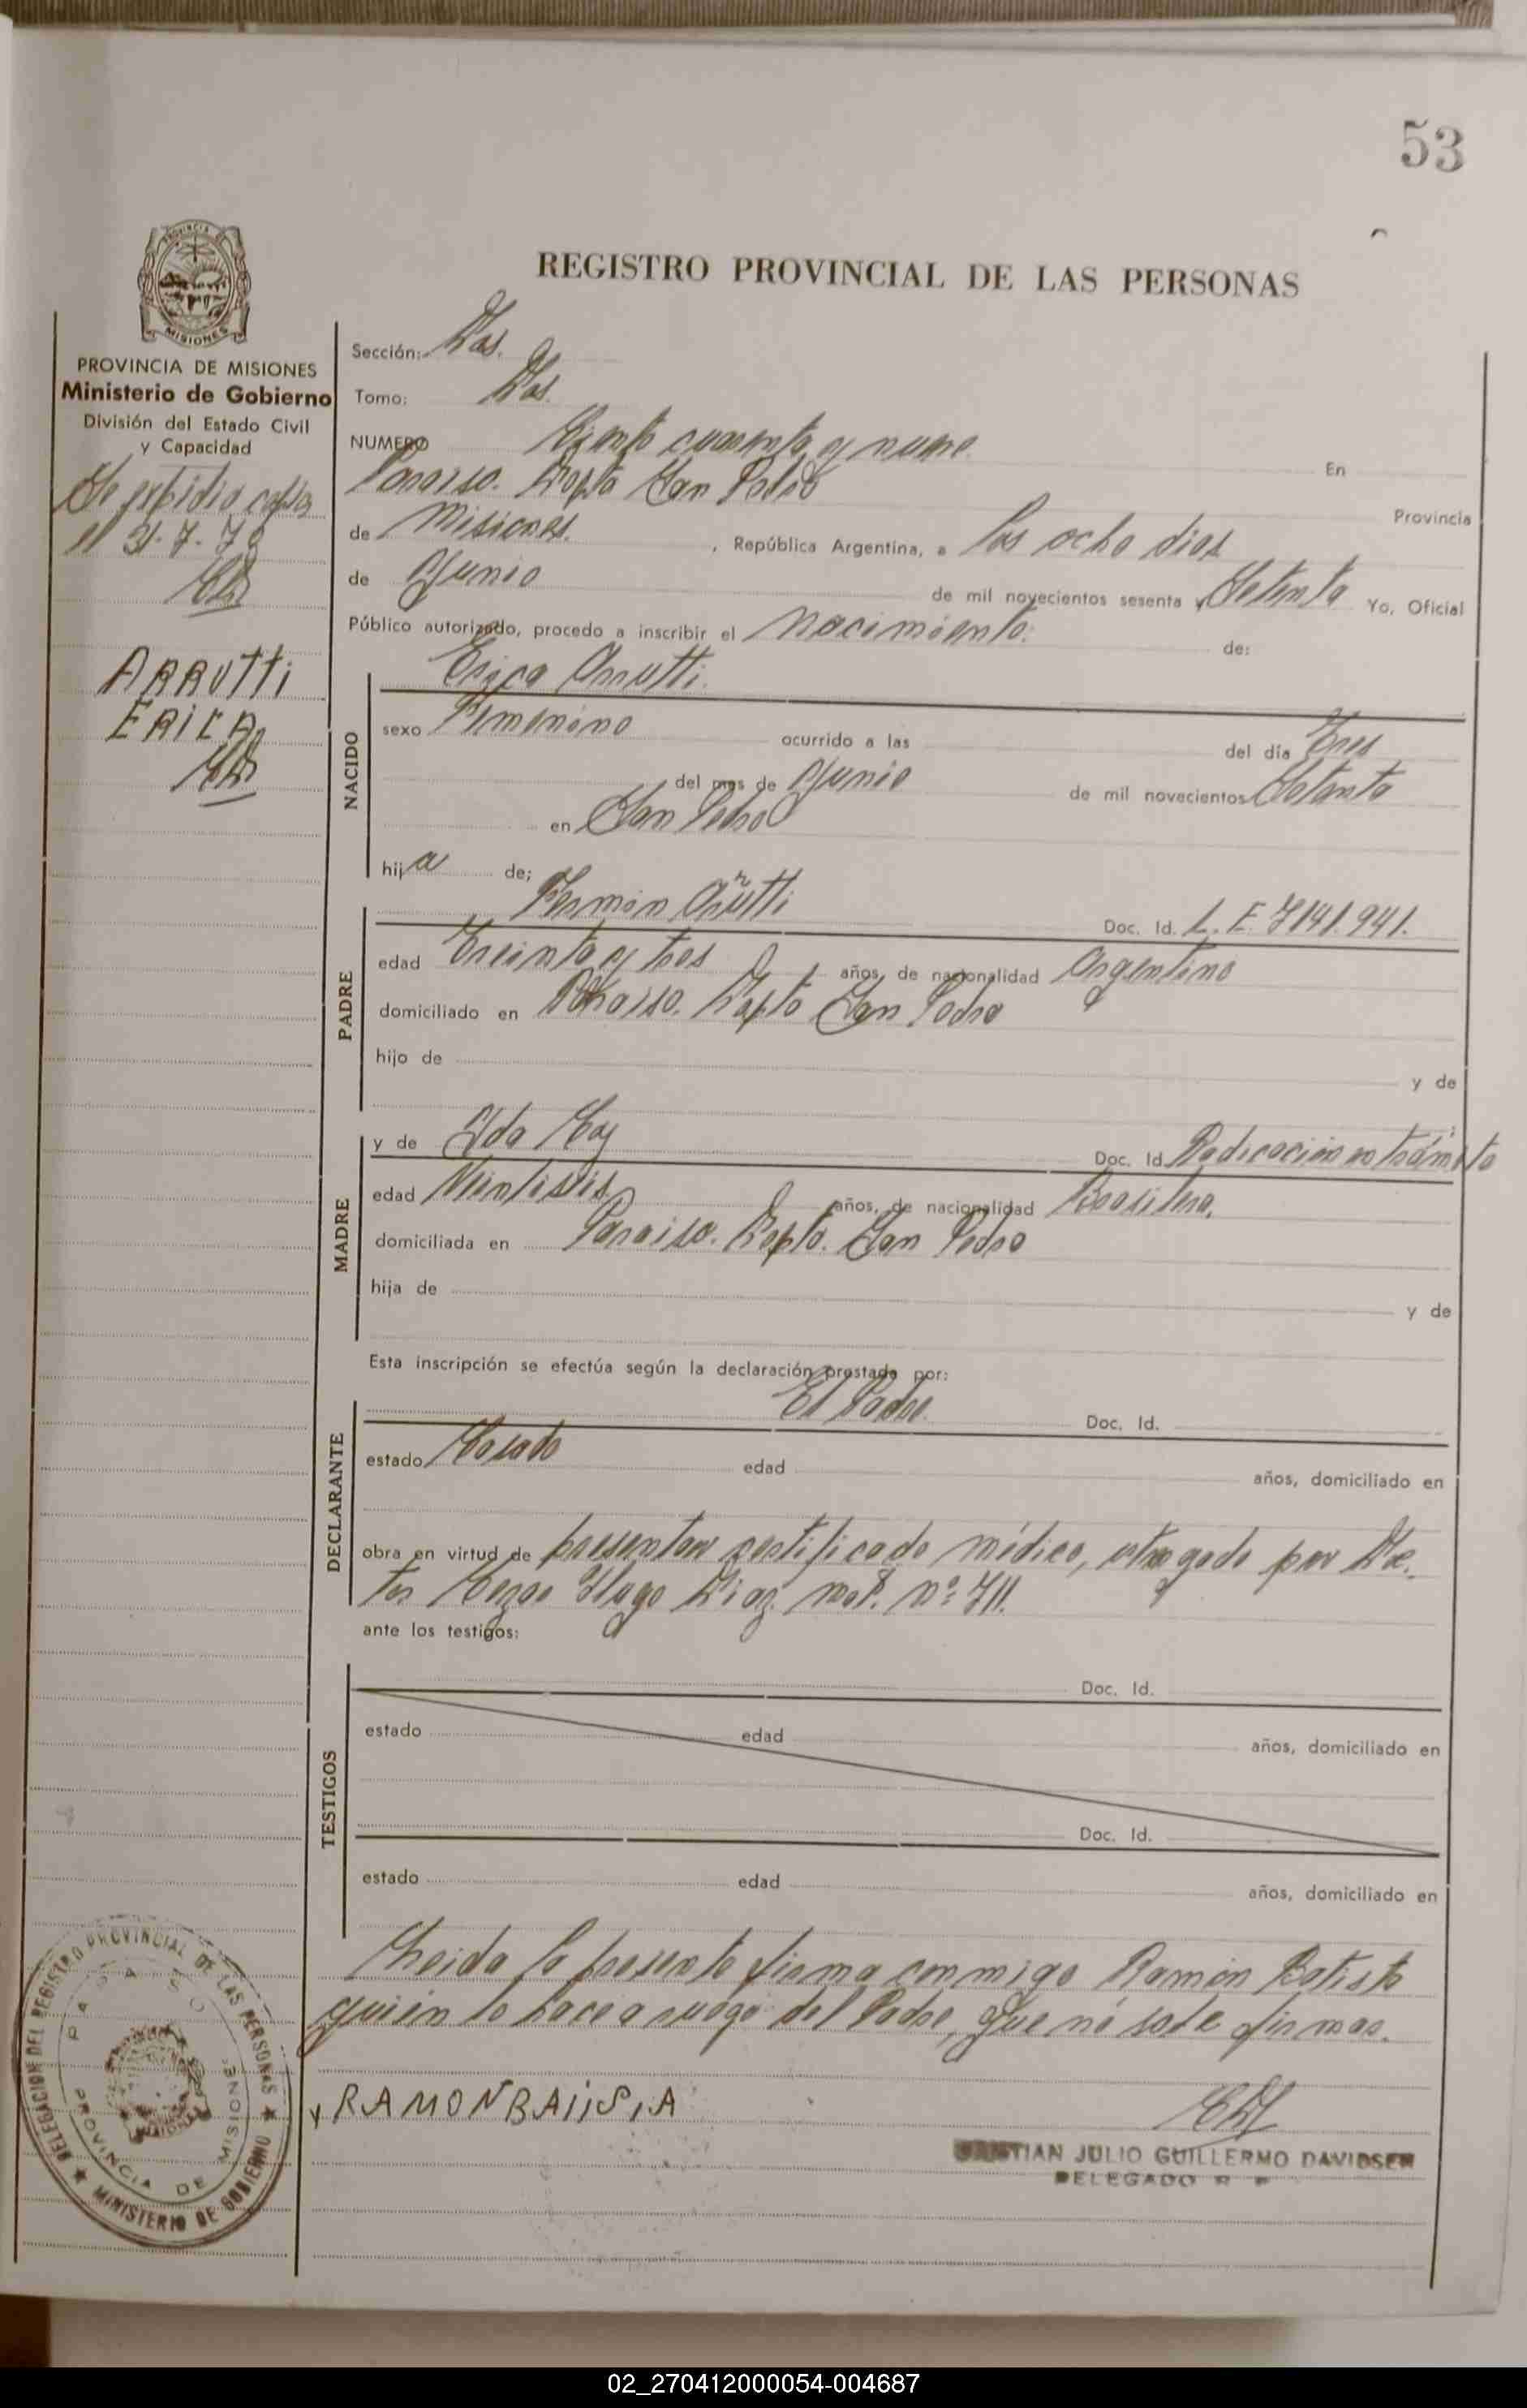 53
REGISTRO PROVINCIAL DE LAS PERSONAS
PROVINCIA DE MISIONES
MISIONES
PROVINCIA DE MISIONES
Ministerio de Gobierno
División del Estado Civil
y Capacidad
Se expidió copia
el 31-7-78
ARRUTTi
ERICA
Sección: Dos.
Tomo: Dos.
NUMERO Ciento cuarenta y nueve En
Paraiso. Depto San Pedro Provincia
de Misiones. , República Argentina, a los ocho dias
de Junio de mil novecientos sesenta y Setenta Yo, Oficial
Público autorizado, procedo a inscribir el Nacimiento. de:
Erica Arrutti.
NACIDO
sexo Femenino ocurrido a las del día Tres
del mes de Junio de mil novecientos Setenta
en San Pedro
hija de;
PADRE
Fermin Arutti Doc. Id. L. E. 7141.941.
edad Treinta y tres años, de nacionalidad Argentino
domiciliado en Paraiso. Depto San Pedro
hijo de y de
MADRE
y de Ilda Doc. Id. Radicación en trámite
edad Veintiseis años, de nacionalidad Brasilera.
domiciliada en Paraiso. Depto. San Pedro
hija de y de
Esta inscripción se efectúa según la declaración prestada por:
DECLARANTE
El Padre. Doc. Id.
estado Casado edad años, domiciliado en
obra en virtud de presentar certificado médico, otorgado por Doc.
tor Hugo Diaz. mat. Nº 711.
ante los testigos:
TESTIGOS
Doc. Id.
estado edad años, domiciliado en
Doc. Id.
estado edad años, domiciliado en
Leida la presente firma conmigo Ramón Batista
quién lo hace a ruego del Padre, que nó sabe firmar.
x RAMON BAiiSiA
CRISTIAN JULIO GUILLERMO DAVIDSEN
DELEGADO R P
DELEGACION DEL REGISTRO PROVINCIAL DE LAS PERSONAS
PARAISO
PROVINCIA DE MISIONES
MINISTERIO DE GOBIERNO
02_270412000054-004687